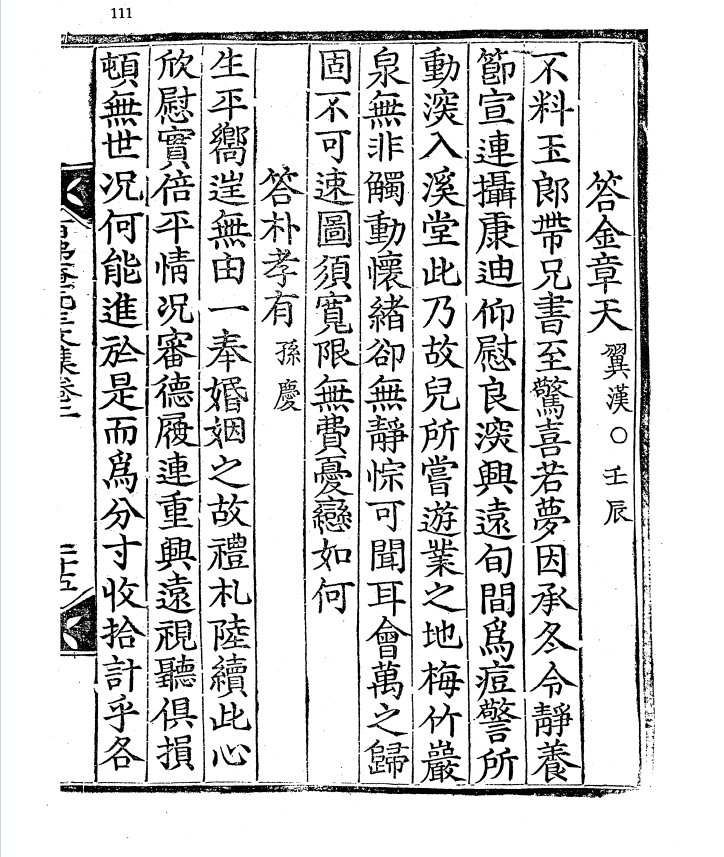 111
答金章天 翼漢○壬辰
不料玉郎帶兄書至驚喜若夢因承冬令靜養
節宣連攝康迪仰慰良深興遠旬間爲痘警所
動深入溪堂此乃故兒所嘗遊業之地梅竹巖
泉無非觸動懷緖卻無靜悰可聞耳會萬之歸
固不可速圖須寬限無費憂戀如何
答朴孝有 孫慶
生平嚮𨓏無由一奉婚姻之故禮札陸續此心
欣慰實倍平情况審德履連重興遠視聽俱損
頓無世况何能進於是而爲分寸收拾計乎各
文集卷二 二十五